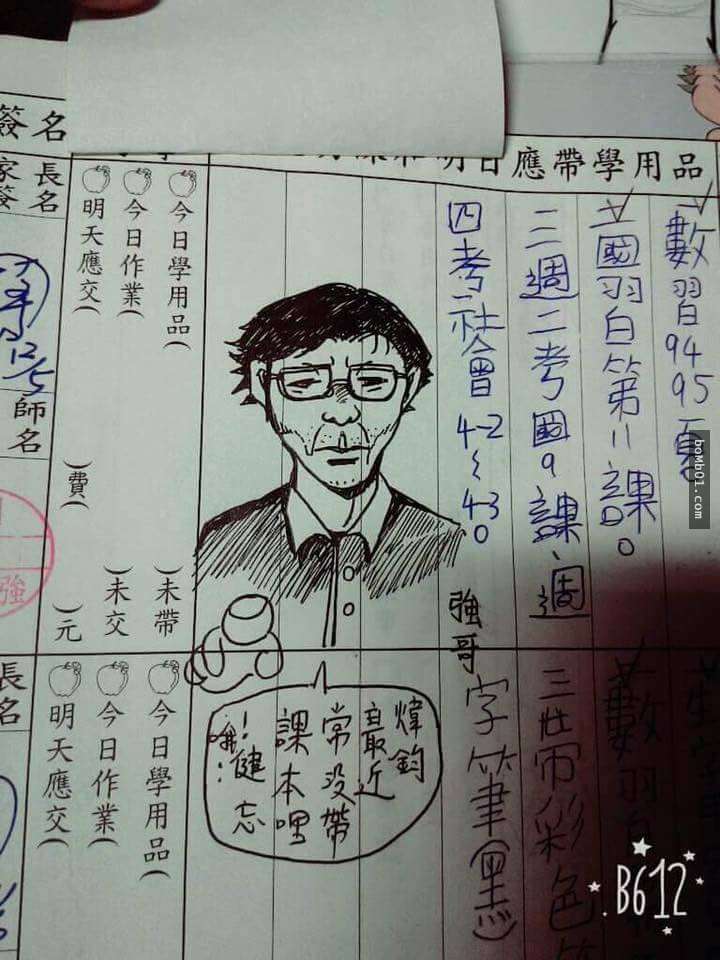 應帶學用品
數習94 95頁
國習白第11課。
三週二考國9課、週
四考社會4-2~4-3。
強哥
今日學用品（ ）未帶
今日作業（ ）未交
明天應交（ ）費（ ）元
簽名
家長簽名
12/5
師名
強
三帶彩色筆
字筆（黑）
煒鈞
最近
常沒帶
課本哩
！健忘
哦！
今日學用品（
今日作業（
明天應交（
長名
bomb01.com
B612